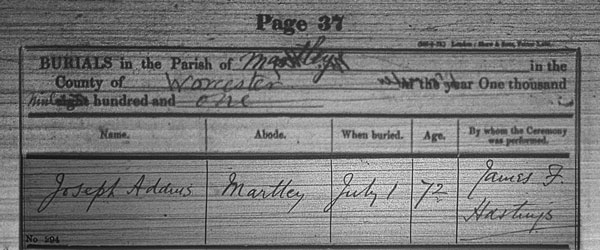 Page 37
BURIALS in the Parish of Martley in the
County of Worcester in the year One thousand
nine hundred and one
Name. Abode. When buried. Age. By whom the Ceremony was performed.
Joseph Addis Martley July 1 72 James F. Hastings
No 294